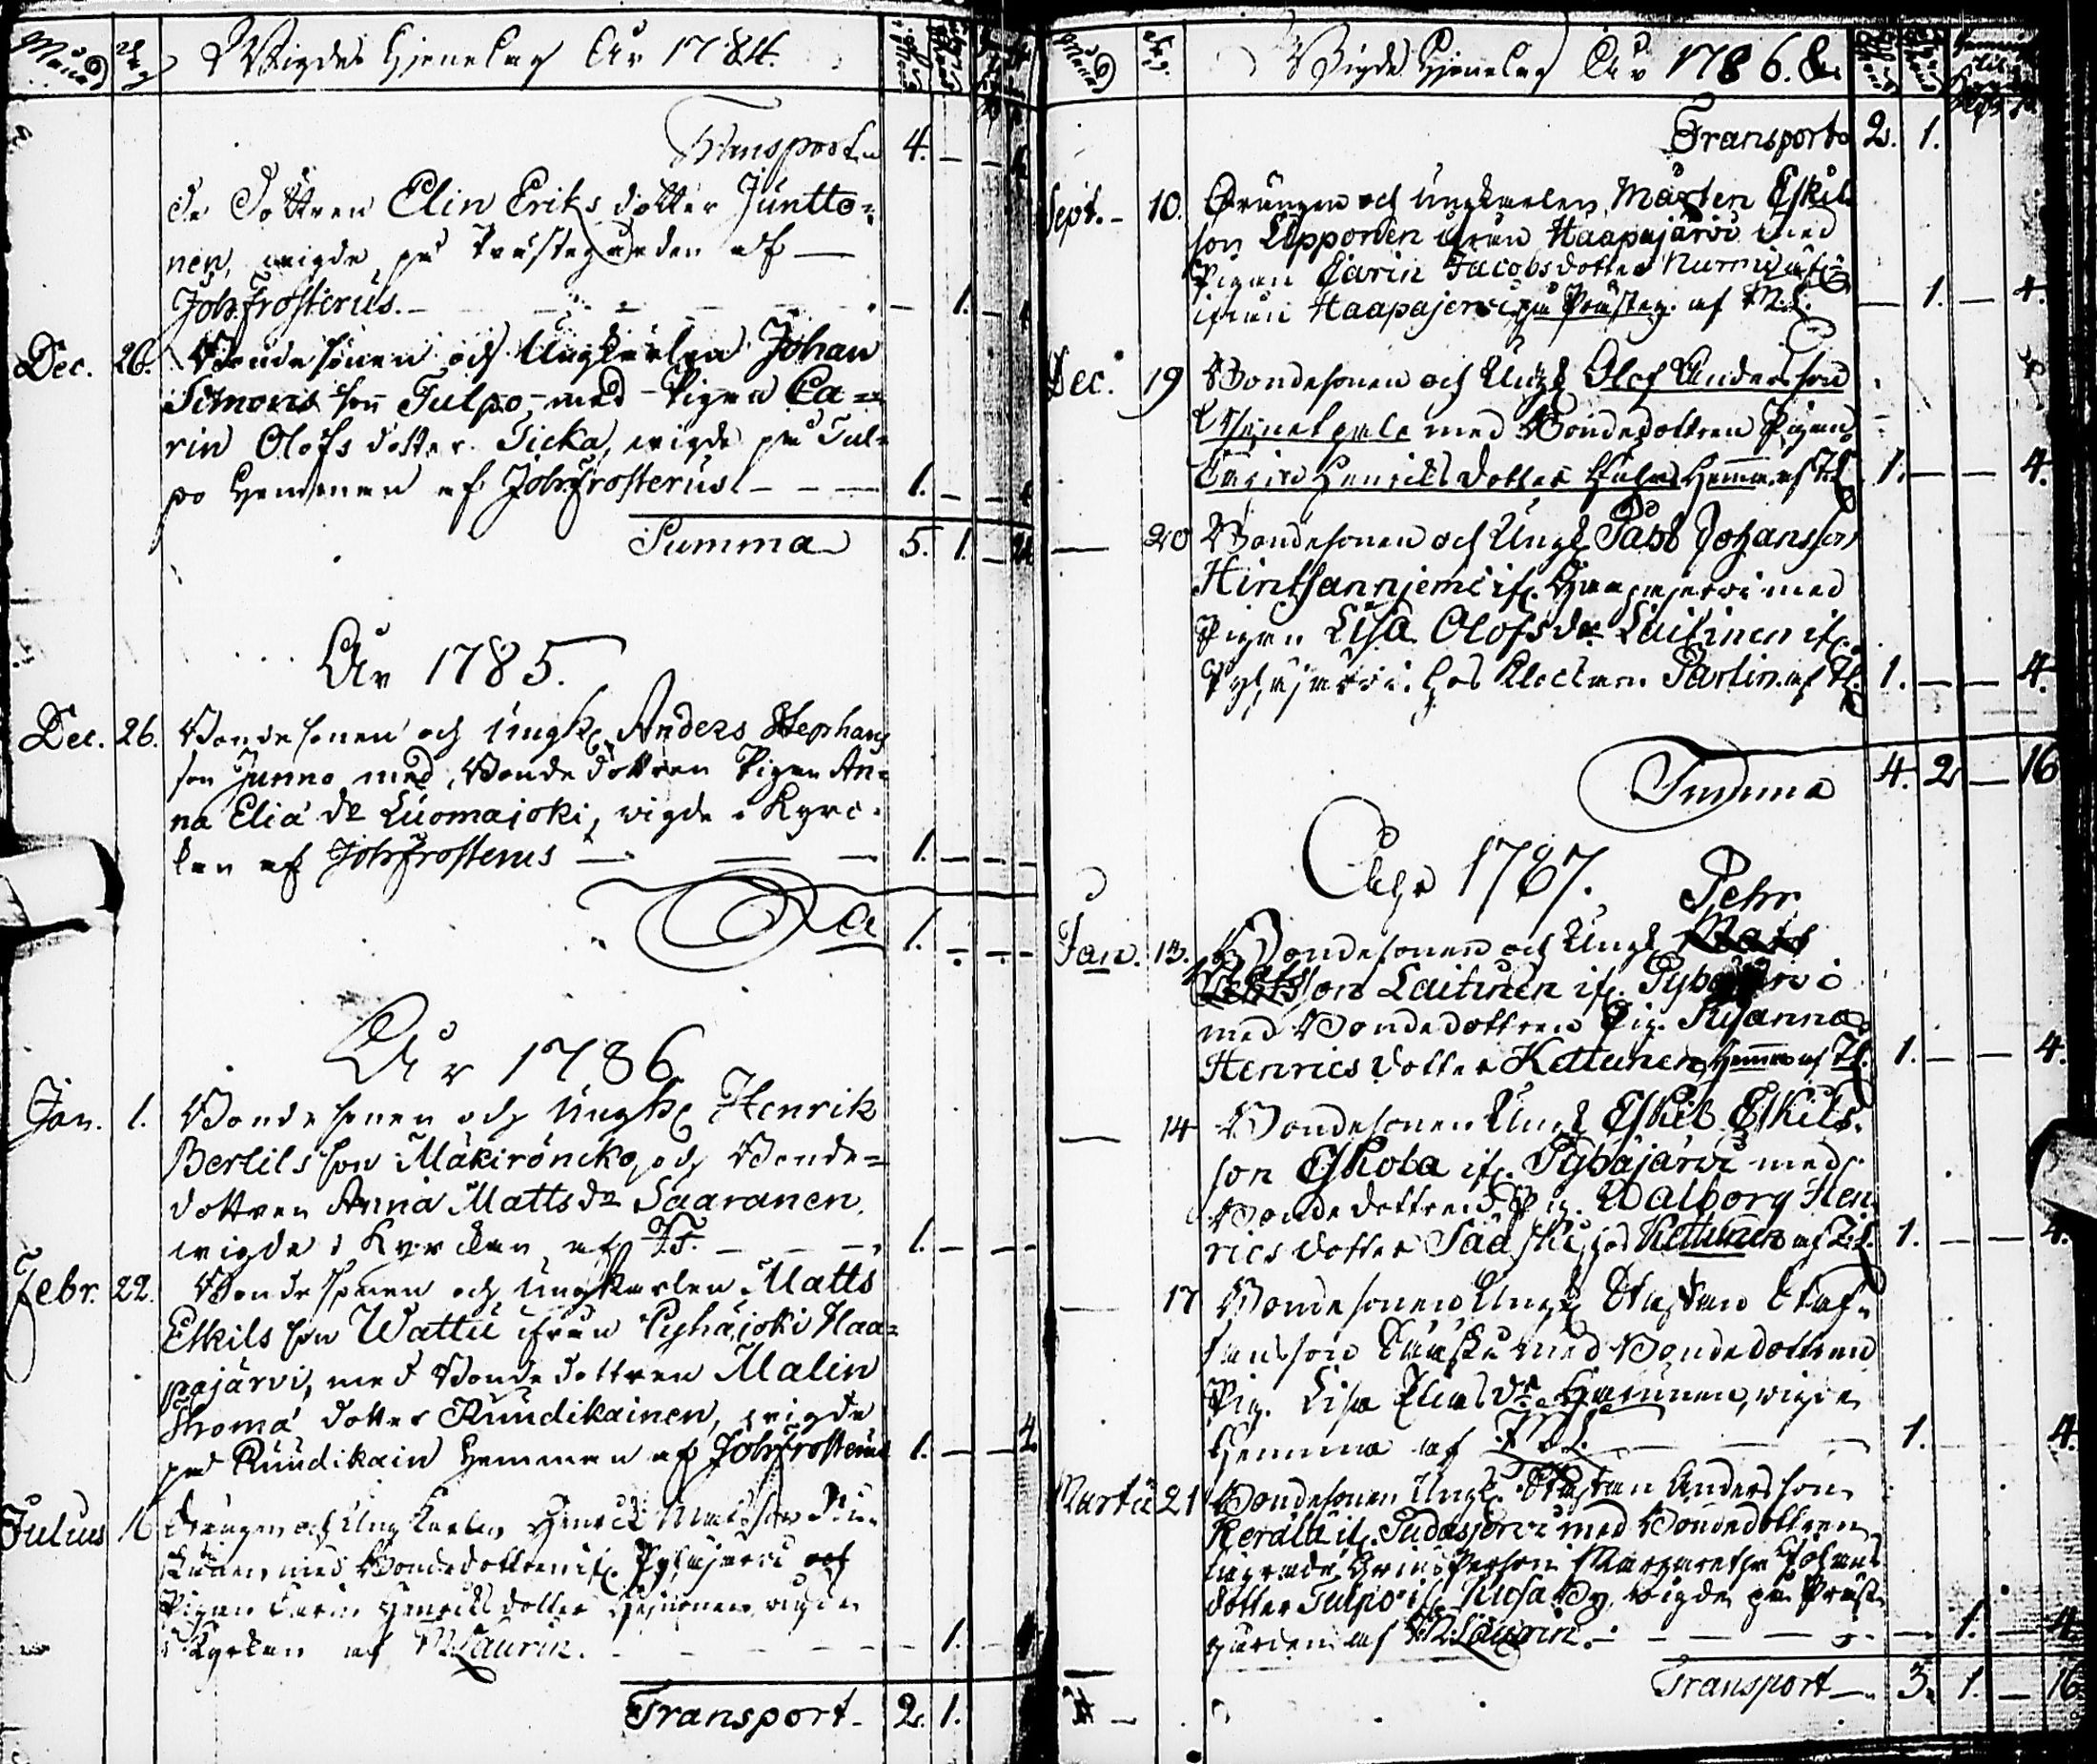 Månad Dag Wigde Hjonelag År 1784.
Transport 4. — —
de dottren Elin Eriks dotter Juntto=
nen, wigde på Prästegården af —
Joh. Frosterus. — — — 1. —
Dec. 26. Bonde sonen och Ungkarlen Johan
Simons son Tulpo med Pigan Ca=
rin Olofs dotter Ticka, wigde på Tul=
po Hemmen af Joh. Frosterus — — — 1. — —
Summa 5. 1. —
År 1785.
Dec. 26. Bonde sonen och Ungk. Anders Stephans
son Junno med Bonde dottren Pigan An=
na Elia dr Luomajoki, wigde i Kyrc=
kan af Joh. Frosterus — — — 1. — — —
1. — — —
År 1786
Jan. 1. Bonde sonen och Ungk. Henrik
Bertils son Mäkiröncko, och Bonde=
dottren Anna Matts dr Saaranen.
wigde i Kyrckan af J.F. — — — 1. — — —
Febr. 22. Bonde sonen och Ungkarlen Matts
Eskils son Wattu ifrån Pyhäjoki Haa=
pajärvi, med Bonde dottren Malin
Thoma dotter Ruudikainen, wigde
på Ruudikain Hemman af Joh. Frosterus 1. — — 4
Julius 16 Drängen och Ung Karlen Henric Matsson
med Bondedottren if. Pyhäjervi och
Pigan Carin Henrics dotter wigde
i Kyrkan af M. Laurin. — — — 1. —
Transport — 2. 1.
Månad Dag. Wigde Hjonelag År 1786.
Transport 2. 1.
Sept. — 10. Drängen och Ungkarlen Mårten Eskils
son Lipponen ifrån Haapajärvi med
Pigan Carin Jacobsdotter
ifrån Haapajervi på Prästeg. af M.L. — 1. — 4.
Dec. 19 Bondesonen och Ungk. Olof Andersson
med Bondedottren Pigan
Carin Henrics dotter Hemma af M.L. 1. — — 4.
— 20 Bondesonen och Ungk. Påhl Johansson
Hintsanniemi if. Haapajervi med
Pigan Lisa Olofs dr Laitinen if.
Pyhäjervi. hos Klockarn Parlin af M.L. 1. — — 4.
Summa 4. 2 — 16
Åhr 1787.
Pehr
Jan. 13. Bondesonen och Ungk.
son Laitinen if. Pyhäjervi
med Bondedottren Pig. Susanna
Henrics dotter Kettunen, Hemma af M.L. 1. — — 4.
— 14 Bondesonen Ungk. Eskil Eskils=
son Eskola if. Pyhäjärvi med
Bondedottren Pig. Walborg Hen
rics dotter Sääski, hos Kettunen af M.L. 1. — — 4.
— 17 Bondesonen Ungk. Staffan Staf=
fansson Sääski med Bondedottren
Pig. Lisa Elias dr Hamunen, wigde
Hemma af M.L. — — — 1. 4.
Martii 21 Bondesonen Ungk. Staffan Andersson
Kerälä if. Pudasjervi med Bondedottren
Margaretha Johans
dotter Tulpo if. By, wigde på Präste
gården af M. Laurin. — — — 1. — 4.
Transport — 3. 1. — 16